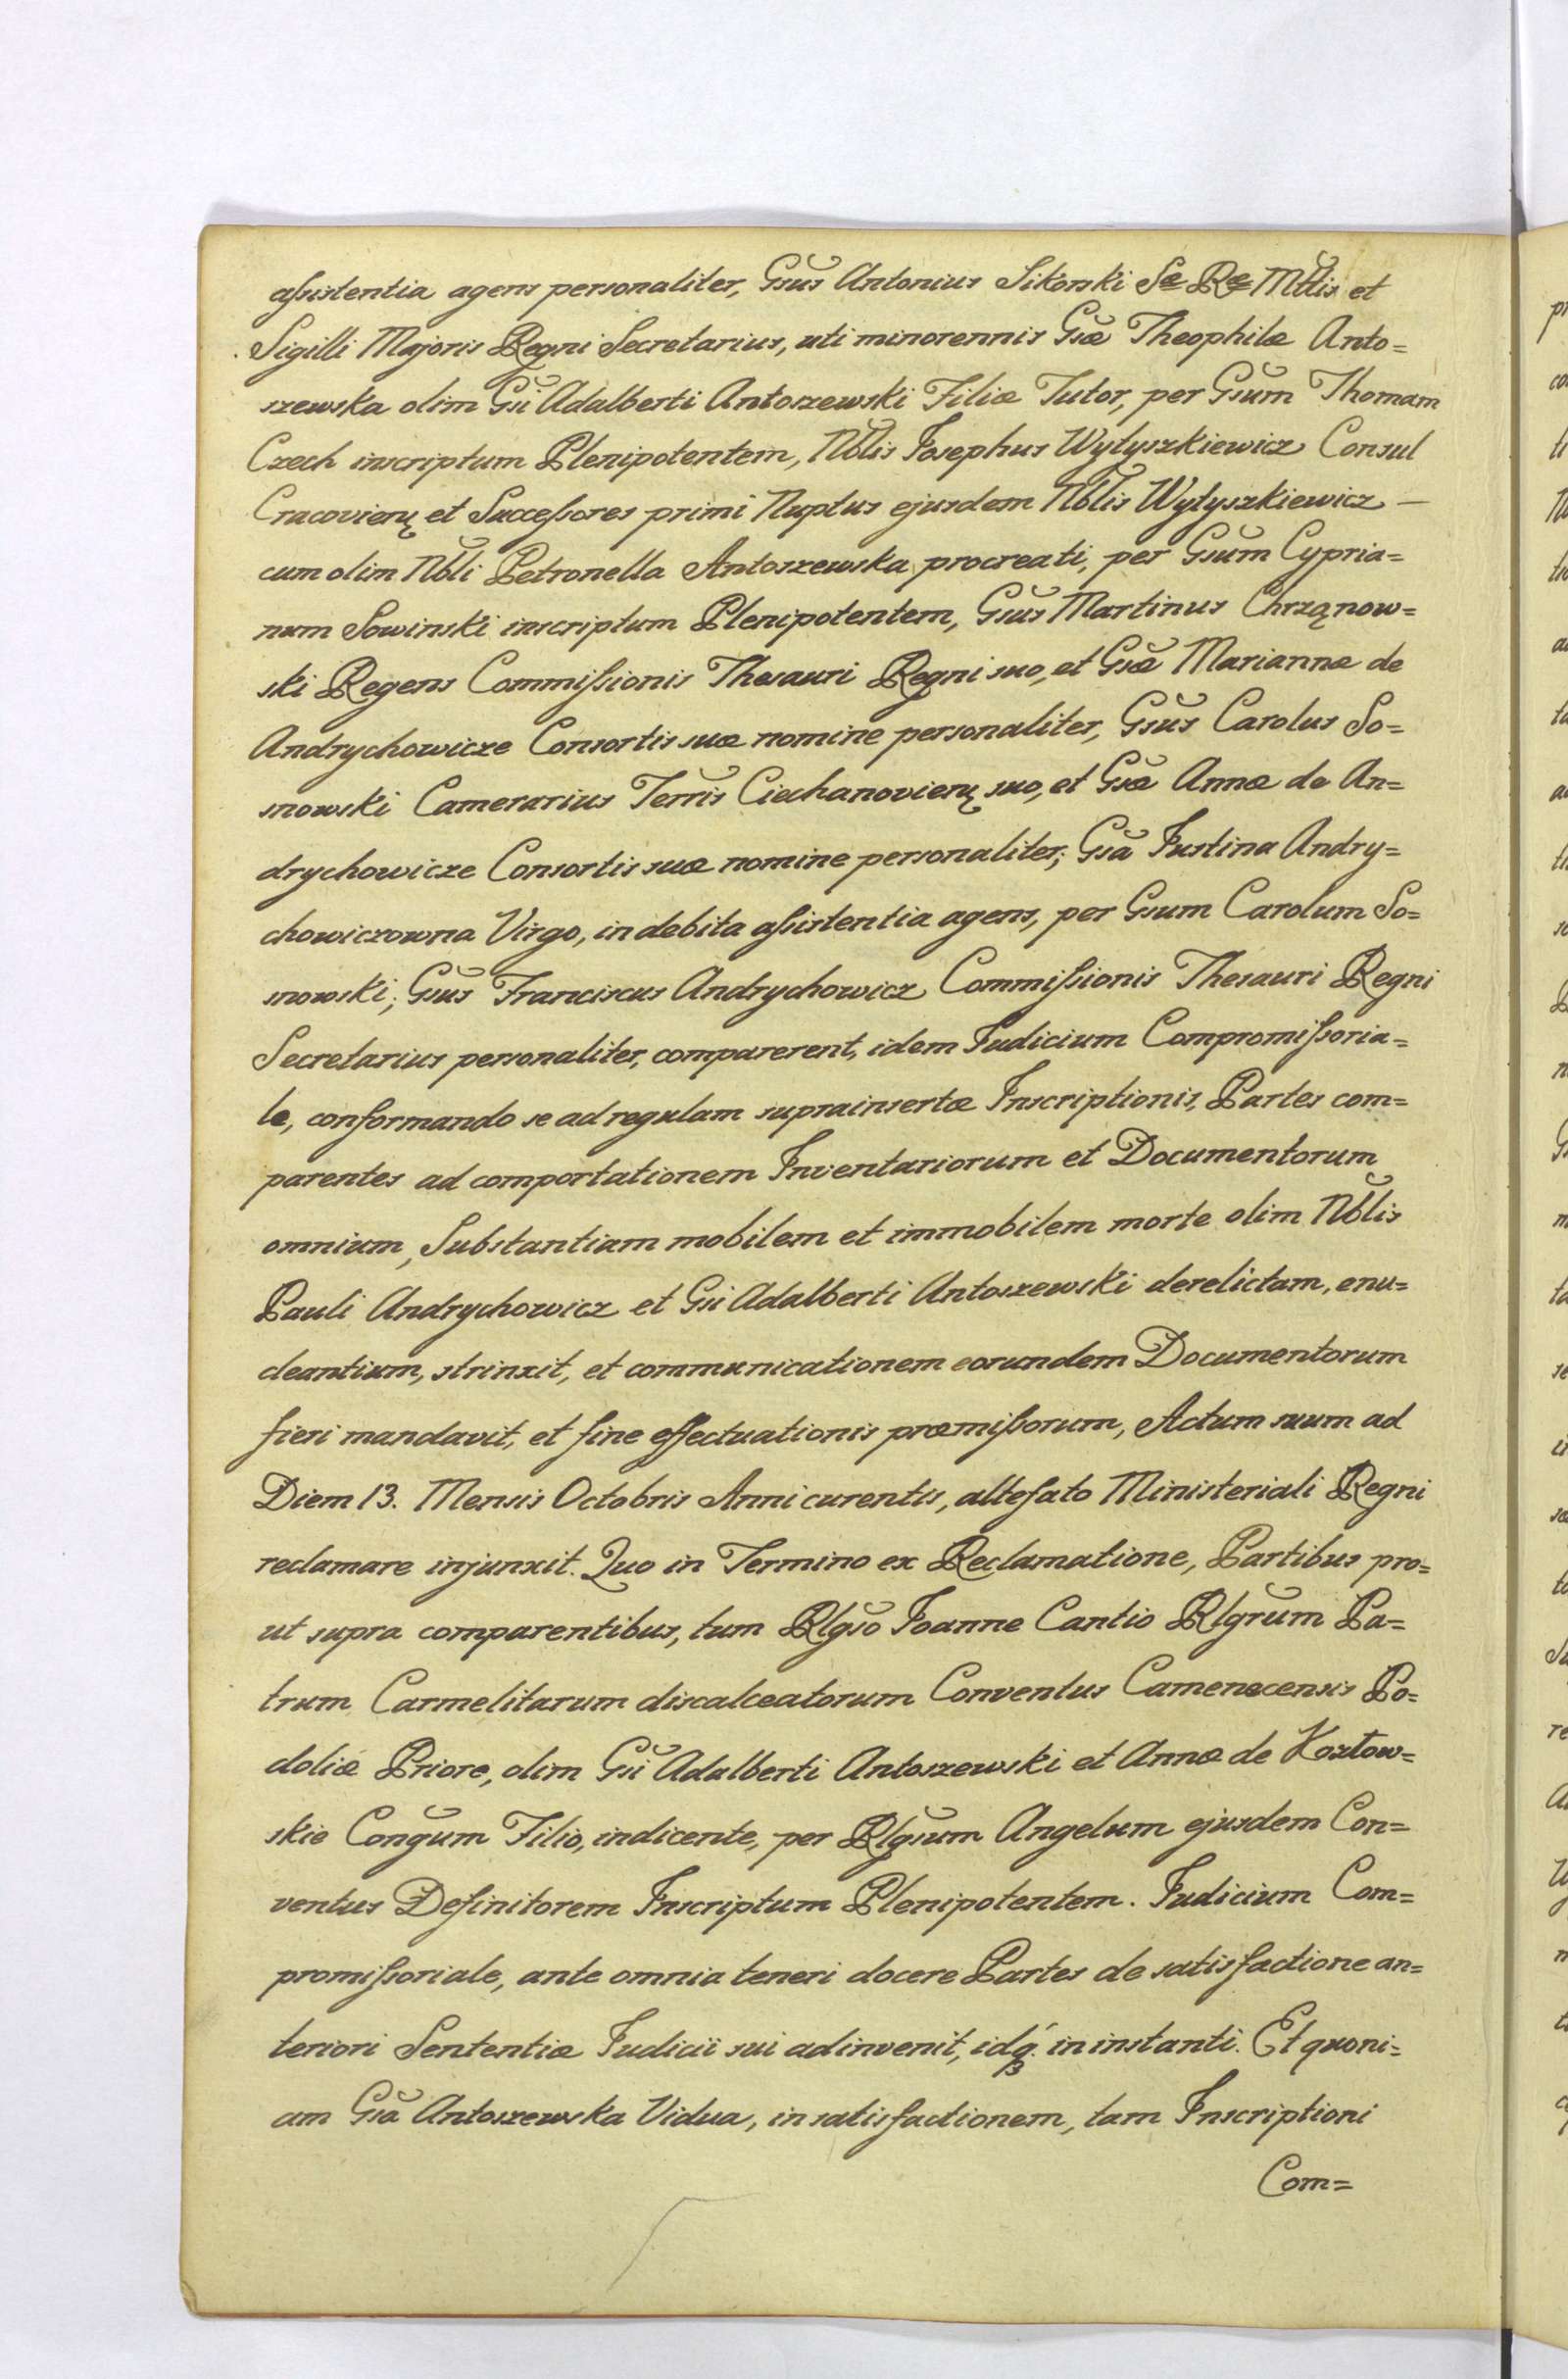 aſsistentia agens personaliter, Gsus Antonius Sikorski Sæ Ræ Mttis et
Sigilli Majoris Regni Secretarius, uti minorennis Gsæ Theophilæ Anto=
szewska olim Gsi Adalberti Antoszewski Filiæ Tutor, per Gsum Thomam
Czech inscriptum Plenipotentem, Nblis Josephus Wytyszkiewicz Consul
Cracovienʒ et Succeſsores primi Nuptus ejusdem Nblis Wytyszkiewicz —
cum olim Nbli Petronella Antoszewska procreati, per Gsum Cypria=
num Sowinski inscriptum Plenipotentem, Gsus Martinus Chrząnow=
ski Regens Commiſsionis Thesauri Regni suo, et Gsæ Mariannæ de
Andrychowicze Consortis suæ nomine personaliter, Gsus Carolus So=
snowski Camerarius Terris Ciechanovienʒ suo, et Gsæ Annæ de An=
drychowicze Consortis suæ nomine personaliter; Gsa Justina Andry=
chowiczowna Virgo, in debita aſsistentia agens, per Gsum Carolum So=
snowski; Gsus Franciscus Andrychowicz Commiſsionis Thesauri Regni
Secretarius personaliter, comparerent, idem Judicium Compromiſsoria=
le, conformando se ad regulam suprainsertæ Inscriptionis, Partes com=
parentes ad comportationem Inventariorum et Documentorum
omnium, Substantiam mobilem et immobilem morte olim Nblis
Pauli Andrychowicz et Gsi Adalberti Antoszewski derelictam, enu=
cleantium, strinxit, et communicationem eorundem Documentorum
fieri mandavit, et fine effectuationis præmiſsorum, Actum suum ad
Diem 13. Mensis Octobris Anni curentis, altefato Ministeriali Regni
reclamare injunxit. Quo in Termino ex Reclamatione, Partibus pro=
ut supra comparentibus, tum Rlgso Joanne Cantio Rlgrum Pa=
trum Carmelitarum discalceatorum Conventus Camenecensis Po=
doliæ Priore, olim Gsi Adalberti Antoszewski et Annæ de Kozłow=
skie Congum Filio, indicente, per Rlgsum Angelum ejusdem Con=
ventus Definitorem Inscriptum Plenipotentem. Judicium Com=
promiſsoriale, ante omnia teneri docere Partes de satisfactione an=
teriori Sententiæ Judicii sui adinvenit, idqʒ in instanti. Et quoni=
am Gsa Antoszewska Vidua, in satisfactionem, tam Inscriptioni
Com=